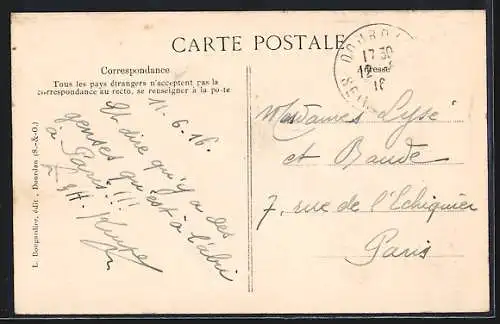 CARTE POSTALE
Correspondance
Tous les pays étrangers n'acceptent pas la
correspondance au recto, se renseigner à la poste
Adresse
DOURD
17 30
12
16
11. 6. 16.
Et dire qu'y a des
qu'est à l'abri
à Paris ! !!!
Mesdames Lyse
et Baude
7, rue de l'Echiquier
Paris
L. Bougardier, édit., Dourdan (S.-&-O.)